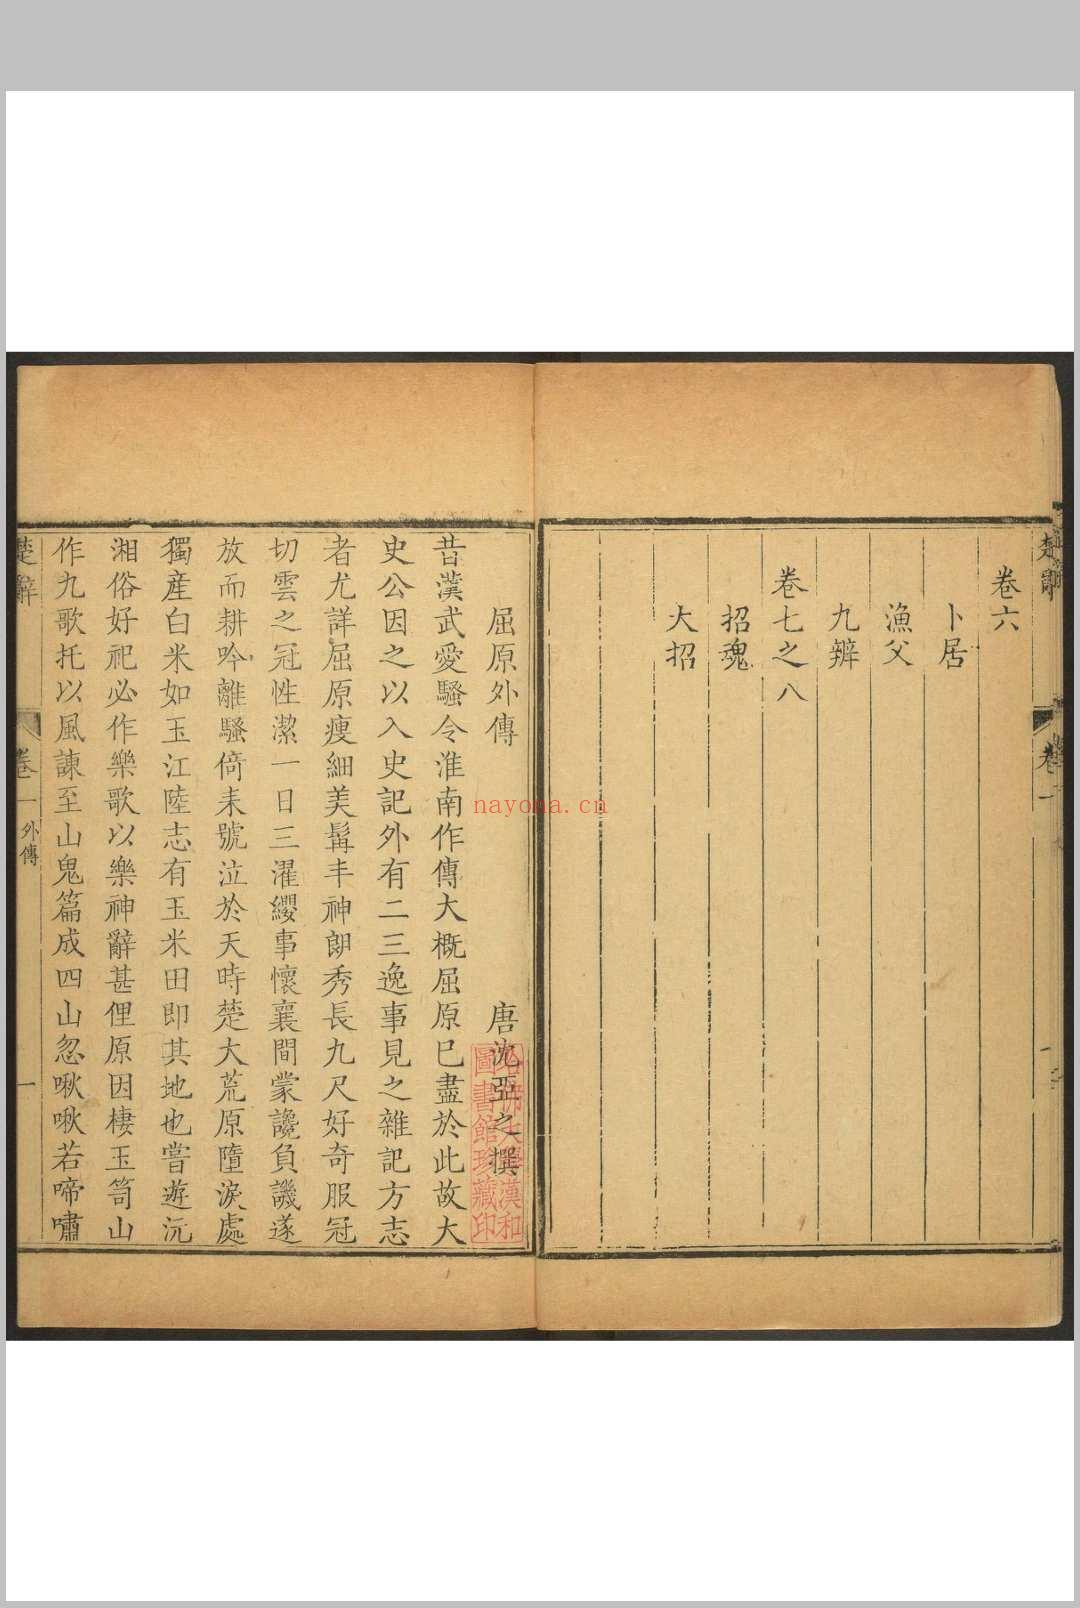 楚辭
卷一
卷六
卜居
漁父
九辨
卷七之八
招魂
大招
屈原外傳
唐沈亞之撰
昔漢武愛騷令淮南作傳大概屈原已盡於此故大
史公因之以入史記外有二三逸事見之雜記方志
者尤詳屈原瘦細美髯丰神朗秀長九尺好奇服冠
切雲之冠性潔一日三濯纓事懷襄間蒙讒負譏遂
放而耕吟離騷倚耒號泣於天時楚大荒原墮淚處
獨產白米如玉江陸志有玉米田即其地也嘗遊沅
湘俗好祀必作樂歌以樂神辭甚俚原因棲玉笥山
作九歌托以風諫至山鬼篇成四山忽啾啾若啼嘯
楚辭
卷一
外傳
一
漢和
圖書館珍藏印
nayona.cn